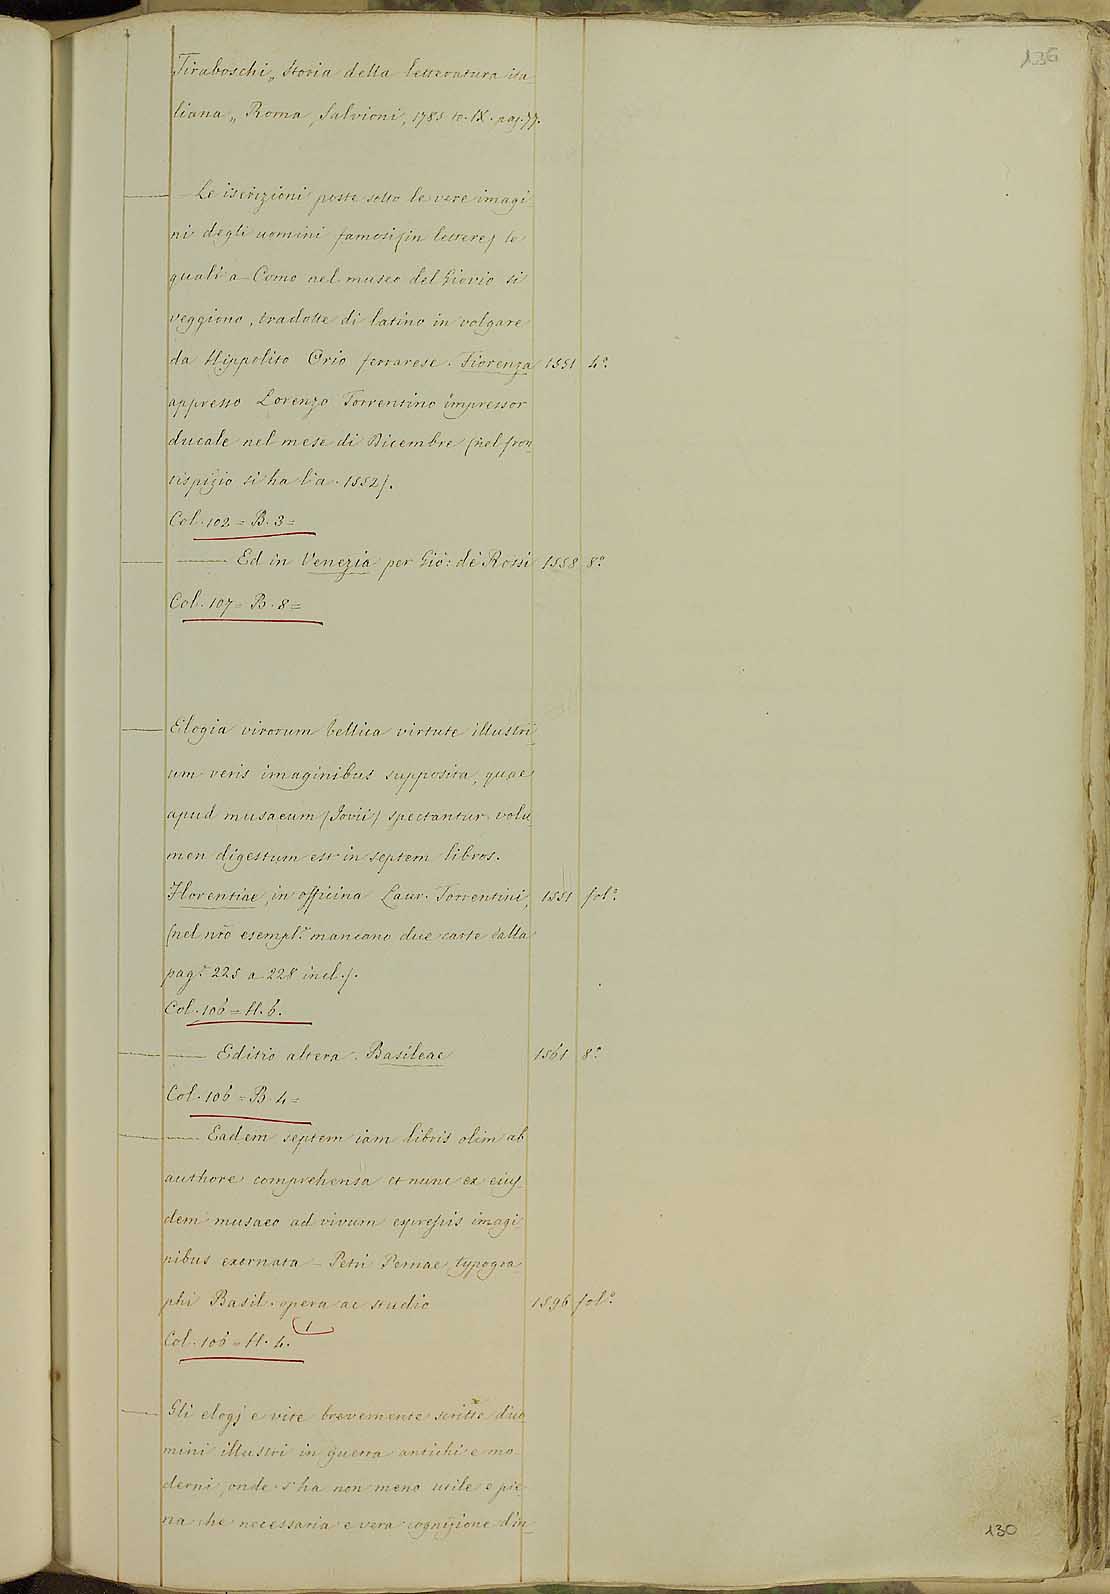 136
Tiraboschi „ Storia della letteratura ita
liana „ Roma, Salvioni, 1785 to. IX. pag. 77.
— Le iscrizioni poste sotto le vere imagi
ni degli uomini famosi (in lettere) le
quali a Como nel museo del Giovio si
veggiono, tradotte di latino in volgare
da Hippolito Orio ferrarese. Fiorenza 1551 4°.
appresso Lorenzo Torrentino impressor
ducale nel mese di Dicembre (nel fron
tispizio si ha l'a. 1552).
Col. 102 = B. 3 =
— Ed in Venezia per Gio: de' Rossi 1558 8°
Col. 107 = B. 8 =
Elogia virorum bellica virtute illustri
um veris imaginibus supposita, quae
apud musaeum (Jovii) spectantur. volu
men digestum est in septem libros.
Florentiae, in officina Laur. Torrentini, 1551 fol°.
(nel nro esempl.e mancano due carte dalla
pag.a 225 a 228 incl.).
Col. 106 = H. 6.
— Editio altera. Basileae 1561 8°
Col. 106 = B. 4 =
— Eadem septem iam libris olim ab
authore comprehensa et nunc ex eius
dem musaeo ad vivum expressis imagi
nibus exornata – Petri Pernae typogra
phi Basil. opera ac studio 1596 fol°.
1
Col. 106 = H. 4.
Gli elogj e vite brevemente scritte d'uo
mini illustri in guerra antichi e mo
derni, onde s'ha non meno utile e pie
na che necessaria e vera cognizione d'in
130